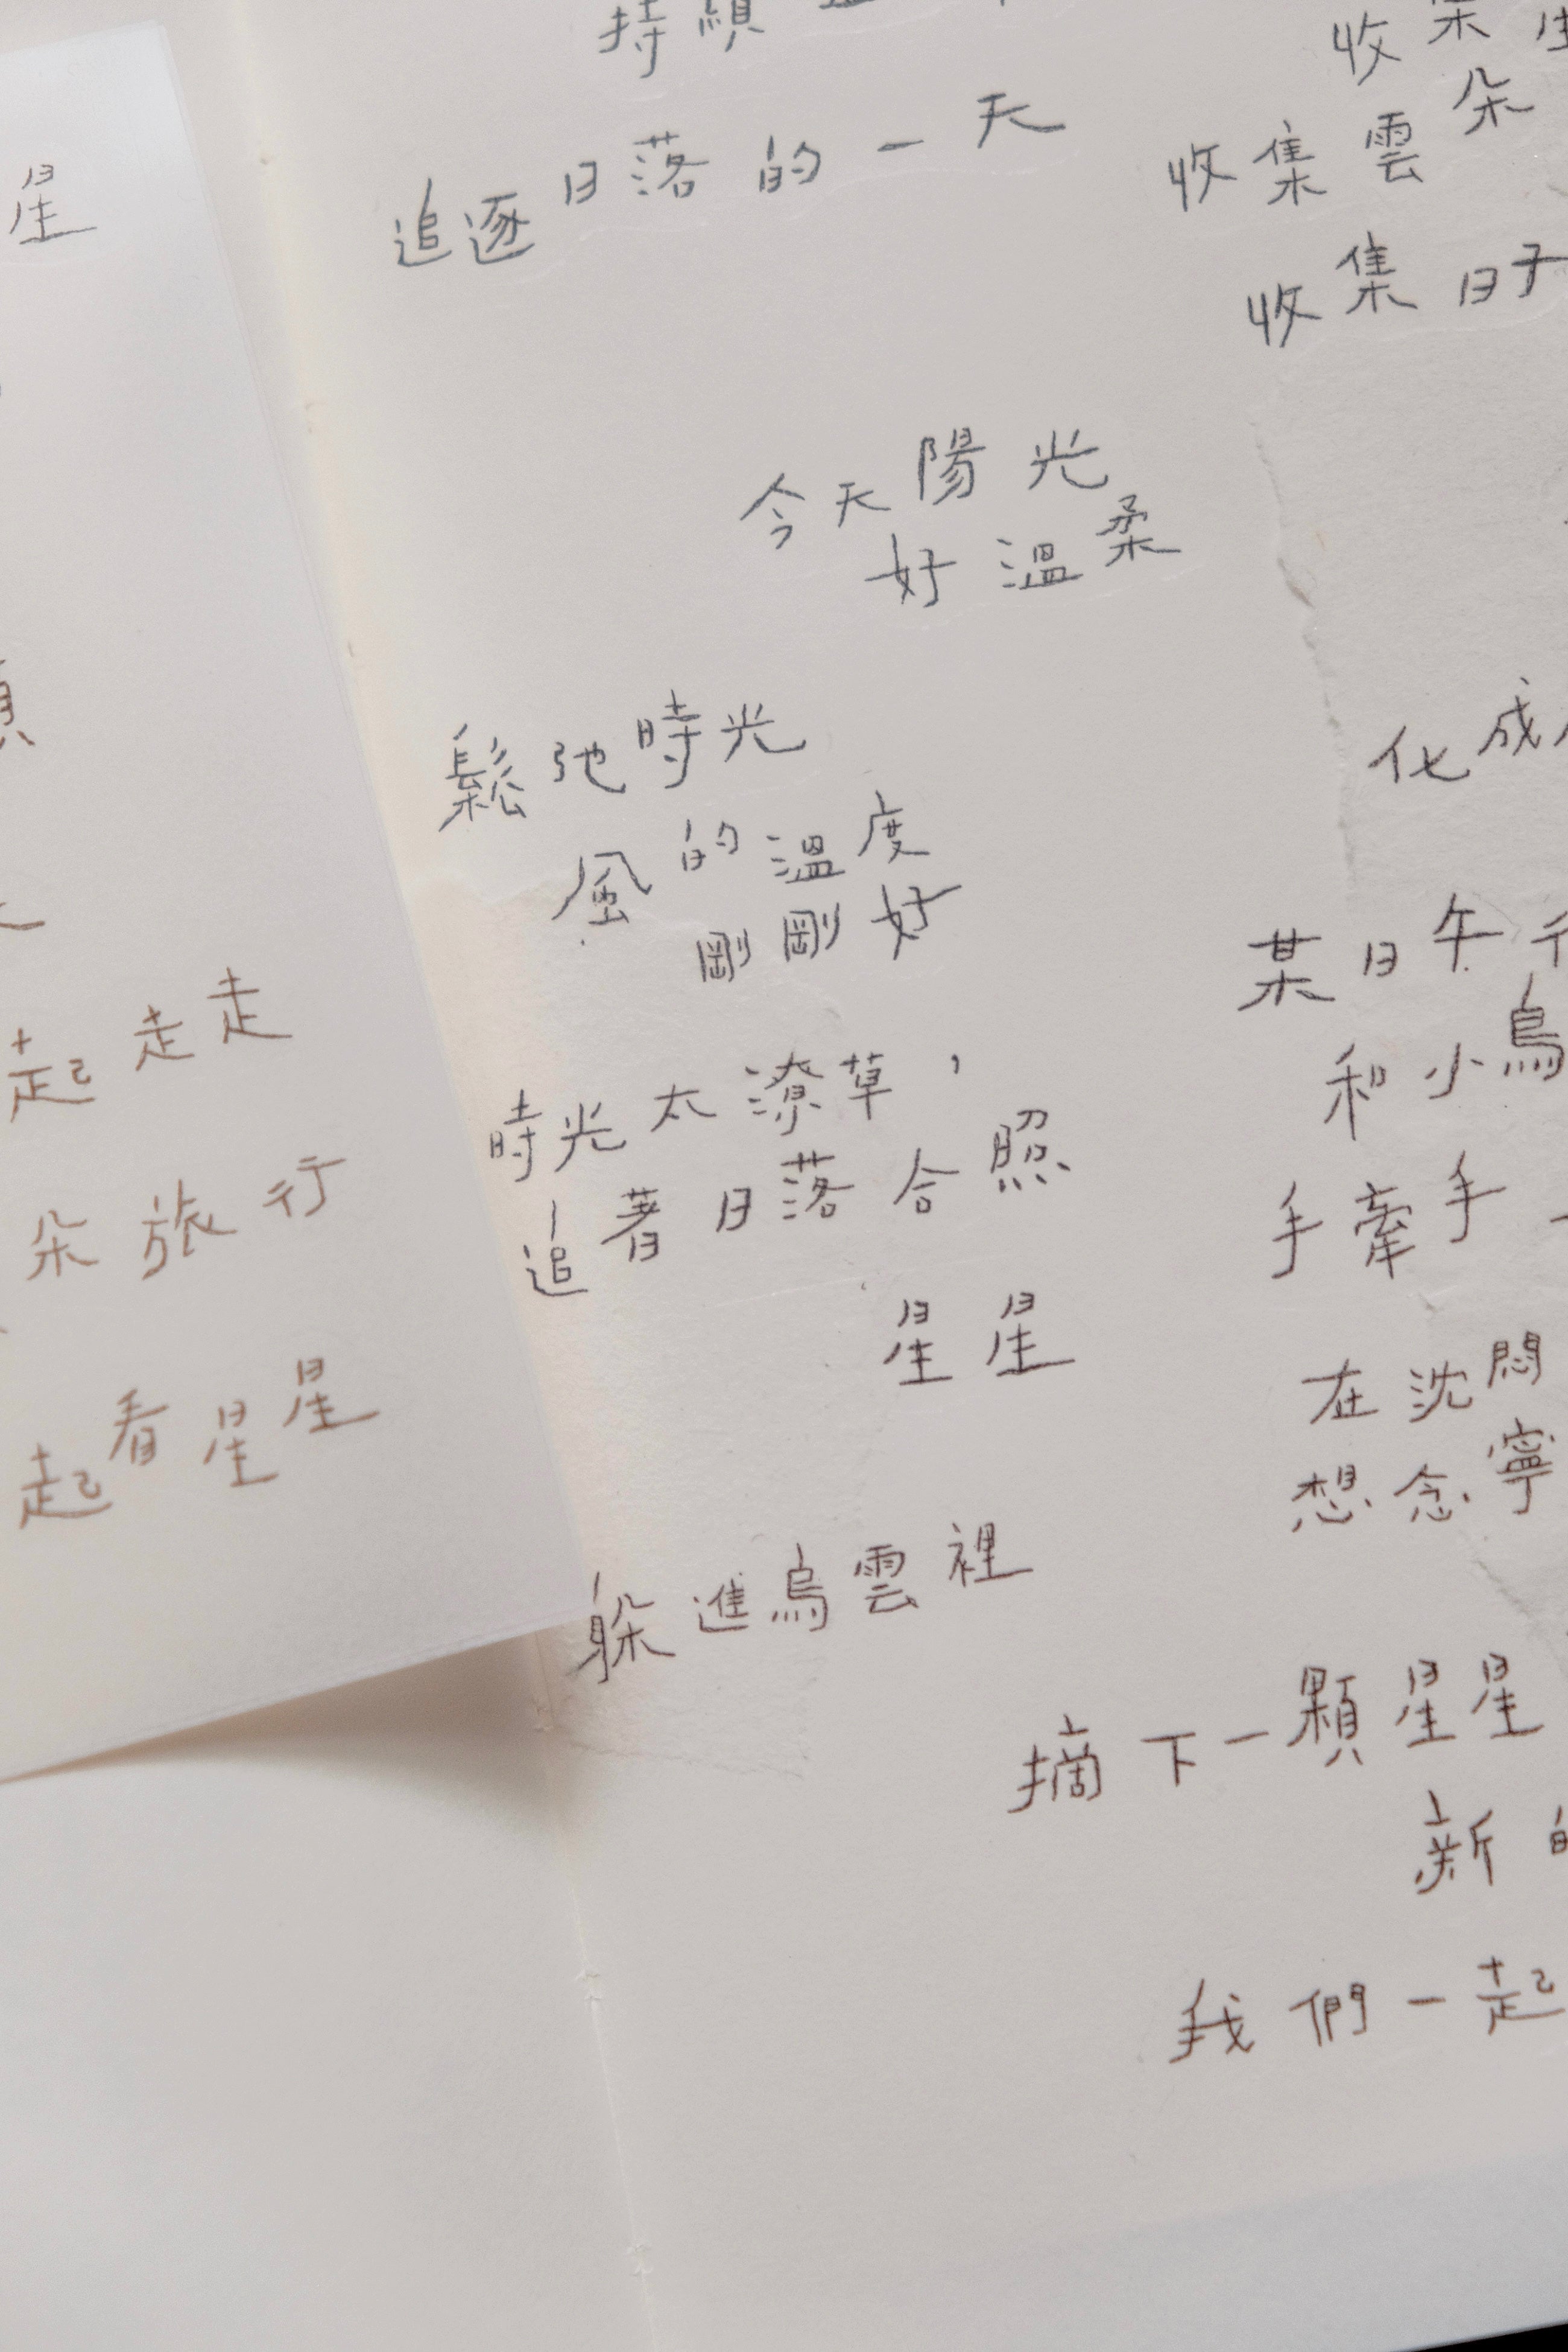 星
起走走
朵旅行
起看星星
持續
追逐日落的一天
今天陽光
好溫柔
鬆弛時光
風的溫度
剛剛好
時光太潦草，
追著日落合照
星星
躲進烏雲裡
收集
收集雲朵
收集日子
化成
某日午
和小鳥
手牽手一
在沈悶
想念寧
摘下一顆星星
新的
我們一起